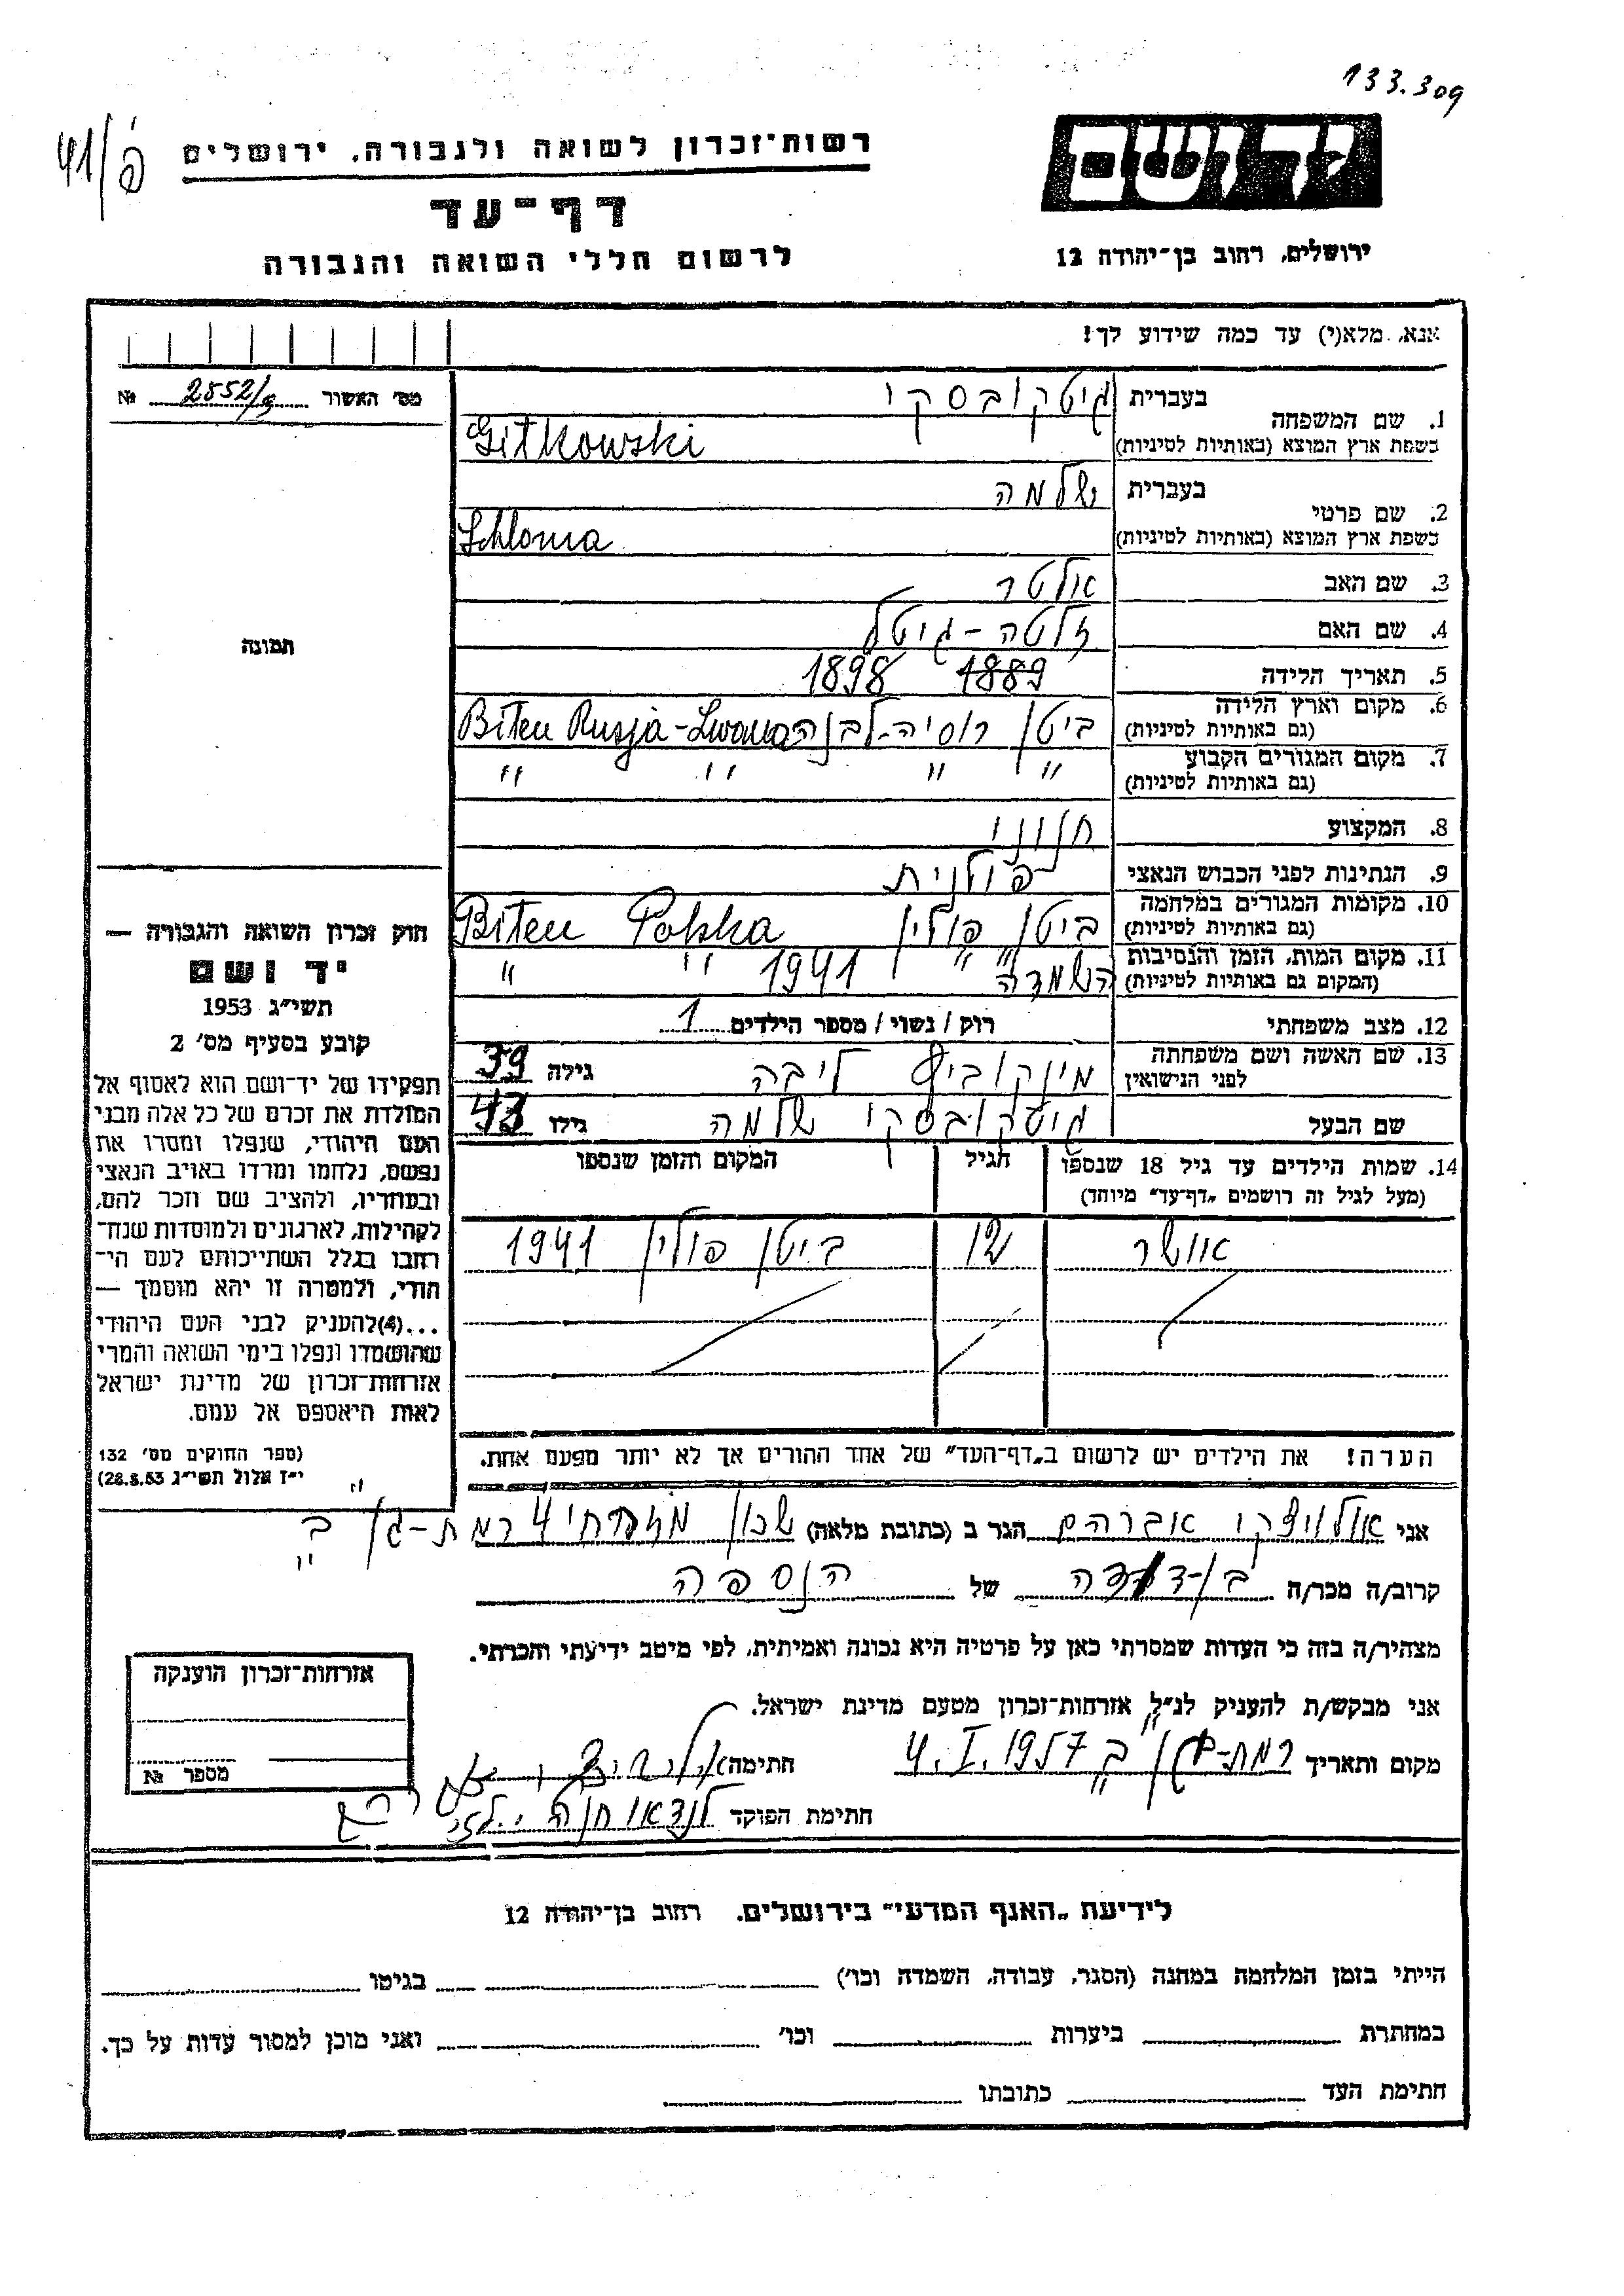 133.309
41/פ'
רשות־זכרון לשואה ולגבורה, ירושלים
דף־עד
לרשום חללי השואה והגבורה
יד ושם
ירושלים, רחוב בן־יהודה 12
אנא, מלא(י) עד כמה שידוע לך!
מס' האשור 2852/ № 
1. שם המשפחה בעברית גיטקובסקי
בשפת ארץ המוצא (באותיות לטיניות) Gitkowski
2. שם פרטי בעברית שלמה
בשפת ארץ המוצא (באותיות לטיניות) Schloma
3. שם האב אלטר
4. שם האם זלטה-גיטל
5. תאריך הלידה 1889 1898
6. מקום וארץ הלידה (גם באותיות לטיניות) ביטן רוסיה-לבנה Biten Rusja-
7. מקום המגורים הקבוע (גם באותיות לטיניות) " " " "
8. המקצוע חנווני
9. הנתינות לפני הכבוש הנאצי פולנית
10. מקומות המגורים במלחמה (גם באותיות לטיניות) ביטן פולין Biten Polska
11. מקום המות, הזמן והנסיבות (המקום גם באותיות לטיניות) השמדה " " 1941 " "
12. מצב משפחתי רוק / נשוי / מספר הילדים 1
13. שם האשה ושם משפחתה לפני הנישואין ליבה גילה 39
שם הבעל גיטקובסקי שלמה גילו 43
14. שמות הילדים עד גיל 18 שנספו (מעל לגיל זה רושמים "דף־עד" מיוחד) הגיל המקום והזמן שנספו
אושר 12 ביטן פולין 1941
הערה! את הילדים יש לרשום ב"דף־העד" של אחד ההורים אך לא יותר מפעם אחת.
תמונה
חוק זכרון השואה והגבורה —
יד ושם
תשי"ג 1953
קובע בסעיף מס' 2
תפקידו של יד־ושם הוא לאסוף אל
המולדת את זכרם של כל אלה מבני
העם היהודי, שנפלו ומסרו את
נפשם, נלחמו ומרדו באויב הנאצי
ובעוזריו, ולהציב שם וזכר להם,
לקהילות, לארגונים ולמוסדות שנח־
רבו בגלל השתייכותם לעם הי־
הודי, ולמטרה זו יהא מוסמך —
...(4) להעניק לבני העם היהודי
שהושמדו ונפלו בימי השואה והמרי
אזרחות־זכרון של מדינת ישראל
לאות היאספם אל עמם.
(ספר החוקים מס' 132
י"ז אלול תשי"ג 28.8.53)
אני אברהם הגר ב (כתובת מלאה) שכון מזרחי 4 רמת-גן ב'
קרוב/ה מכר/ה בן-דודה של הנספה
מצהיר/ה בזה כי העדות שמסרתי כאן על פרטיה היא נכונה ואמיתית, לפי מיטב ידיעתי והכרתי.
אני מבקש/ת להעניק לנ"ל אזרחות־זכרון מטעם מדינת ישראל.
מקום ותאריך רמת-גן ב' 4.I.1957 חתימה
חתימת הפוקד לנדאו חנה
אזרחות־זכרון הוענקה
מספר №
לידיעת "האגף המדעי" בירושלים. רחוב בן־יהודה 12
הייתי בזמן המלחמה במחנה (הסגר, עבודה, השמדה וכו') בגיטו
במחתרת ביערות וכו' ואני מוכן למסור עדות על כך.
חתימת העד כתובתו